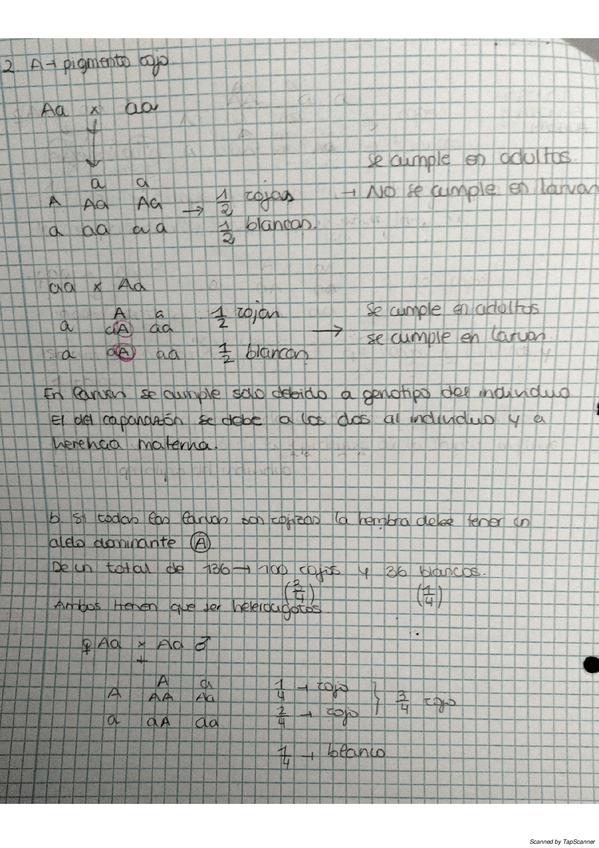 2. A→ pigmento rojo
Aa x aa
a a
A Aa Aa → 1/2 rojas
a aa aa 1/2 blancas.
se cumple en adultos
→ NO se cumple en larvas
aa x Aa
A a 1/2 rojas
a aA aa
a aA aa 1/2 blancas
→ se cumple en adultos
se cumple en larvas
En larvas se cumple solo debido a genotipo del individuo
El del caparazón se debe a los dos al individuo y a
herencia materna.
b. Si todas las larvas son rojizas la hembra debe tener un
alelo dominante (A)
De un total de 136→ 100 rojos y 36 blancos.
(3/4) (1/4)
Ambos tienen que ser heterocigotos
♀ Aa x Aa ♂
A a
A AA Aa
a aA aa
1/4 → rojo
2/4 → rojo } 3/4 rojo
1/4 → blanco
Scanned by TapScanner